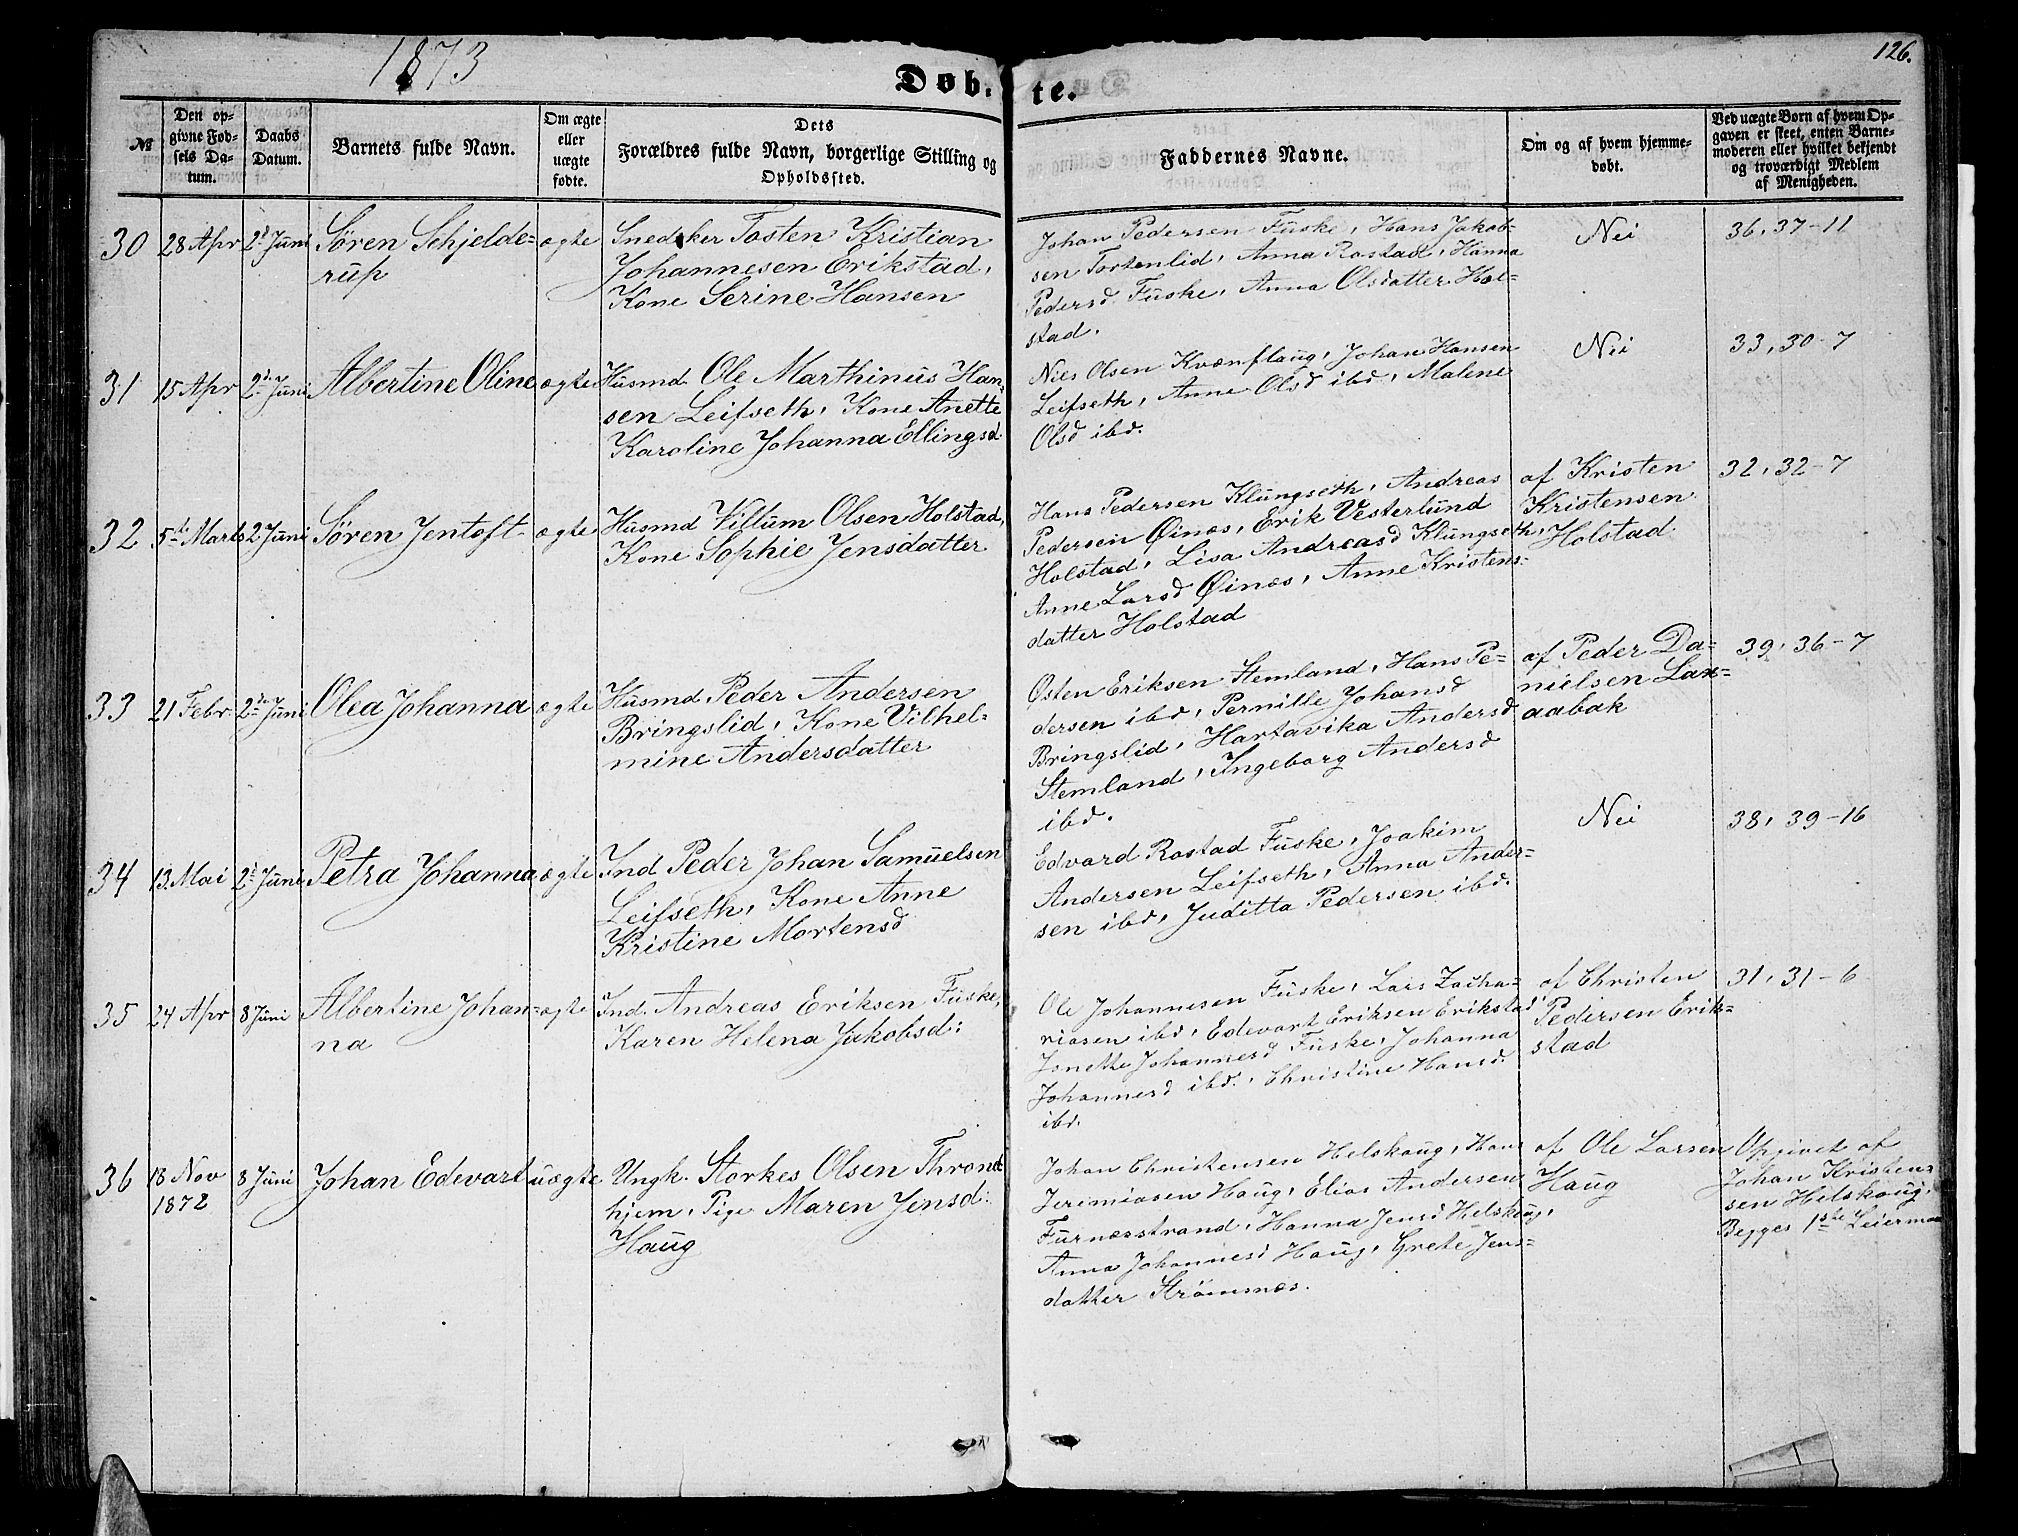 1873
126.
Døb-
te.
№
Den op-
givne Fød-
sels Da-
tum.
Daabs
Datum.
Barnets fulde Navn.
Om ægte
eller
uægte
fødte.
Dets
Forældres fulde Navn, borgerlige Stilling og
Opholdssted.
Faddernes Navne.
Om og af hvem hjemme-
døbt.
Ved uægte Børn af hvem Op-
gaven er skeet, enten Barne-
moderen eller hvilket bekjendt
og troværdigt Medlem
af Menigheden.
30
28 Apr
2d Juni
Søren Schjelde-
rup
ægte
Snedker Tosten Kristian
Johannesen Erikstad,
Kone Serine Hansen
Johan Pedersen Fuske, Hans Jakob-
sen Tortenlid, Anna Rostad, Hanna
Pedersd Fuske, Anna Olsdatter Hol-
stad.
Nei
36, 37-11
31
15 Apr
2den Juni
Albertine Oline
ægte
Husmd Ole Marthinus Han-
sen Leifseth, Kone Anette
Karoline Johanna Ellingsd
Niels Olsen Kvænflaug, Johan Hansen
Leifseth, Anne Olsd ibd, Malene
Olsd ibd.
Nei
33, 30-7
32
5te Marts
2 Juni
Søren Jentoft
ægte
Husmd Villum Olsen Holstad,
Kone Sophie Jensdatter
Hans Pedersen Klungseth, Andreas
Pedersen Øinæs, Erik Vesterlund
Holstad, Lisa Andreasd Klungseth,
Anne Larsd Øinæs, Anne Kristens-
datter Holstad
af Kristen
Kristensen
Holstad
32, 32-7
33
21 Febr
2den Juni
Olea Johanna
ægte
Husmd Peder Andersen
Bringslid, Kone Vilhel-
mine Andersdatter
Østen Eriksen Stemland, Hans Pe-
dersen ibd, Pernille Johansd
Bringslid, Hartavika Andersd
Stemland, Ingeborg Andersd
ibd.
af Peder Da-
nielsen Lax-
aabak
39, 36-7
34
13. Mai
2d Juni
Petra Johanna
ægte
Ind Peder Johan Samuelsen
Leifseth, Kone Anne
Kristine Mortensd
Edvard Rostad Fuske, Joakim
Andersen Leifseth, Anna Ander-
sen ibd, Juditta Pedersen ibd.
Nei
38, 39-16
35
24 Apr
8 Juni
Albertine Johan-
na
ægte
Ind. Andreas Eriksen Fuske,
Karen Helena Jakobsd:
Ole Johannesen Fuske, Lars Zacha-
riasen ibd, Edevart Eriksen Erikstad,
Jonette Johannesd Fuske, Johanna
Johannesd ibd., Christine Hansd
ibd.
af Christen
Pedersen Erik-
stad
31, 31-6
36
18 Nov
1872
8 Juni
Johan Edevart
uægte
Ungk. Storkes Olsen Thrond-
hjem, Pige Maren Jensd:
Haug
Johan Christensen Helskaug, Hans
Jeremiasen Haug, Elias Andersen
Furnæsstrand, Hanna Jensd Helskaug,
Anna Johannesd Haug, Grete Jens-
datter Strømsnæs.
af Ole Larsen
Haug
Opgivet af
Johan Kristen-
sen Helskaug.
Begges 1ste Leiermaal